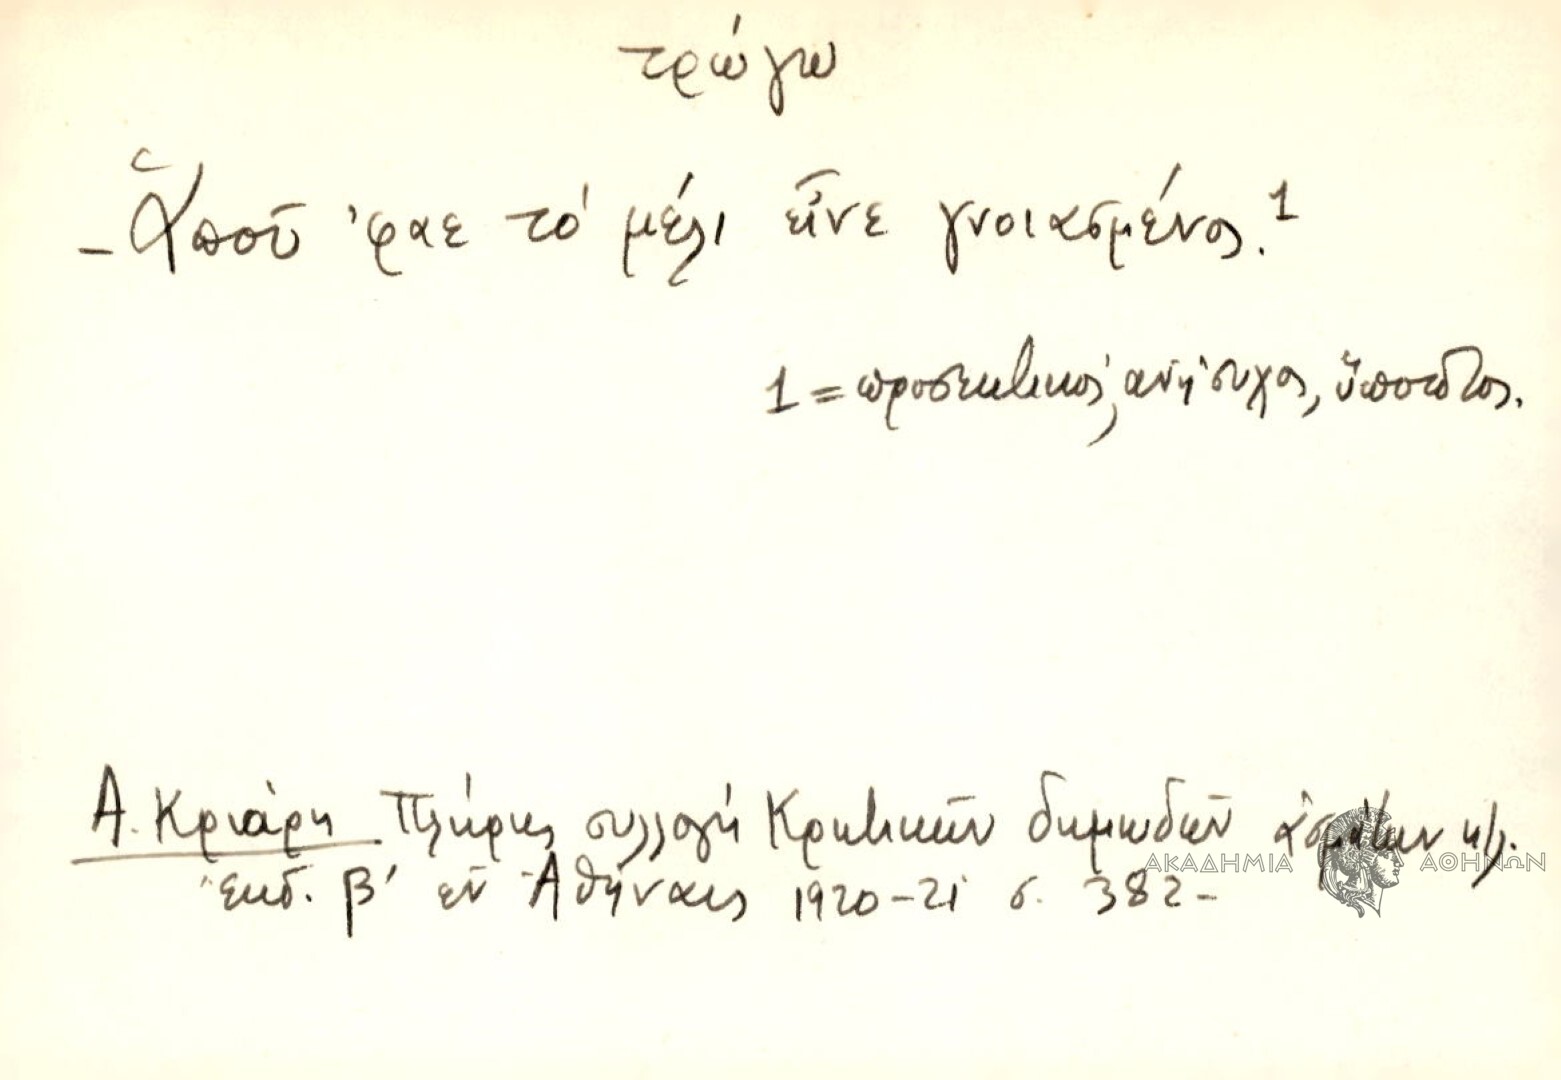 τρώγω
– Ἁποῦ 'φαε τὸ μέλι εἶνε γνοιασμένος.¹
1 = προσεκτικός, ανήσυχος, ὕποπτος.
Α. Κριάρη Πλήρης συλλογή Κρητικῶν δημωδῶν ᾀσμάτων κλ.
ἐκδ. β' εν Ἀθήναις 1920-21 σ. 382-
ΑΚΑΔΗΜΙΑ ΑΘΗΝΩΝ